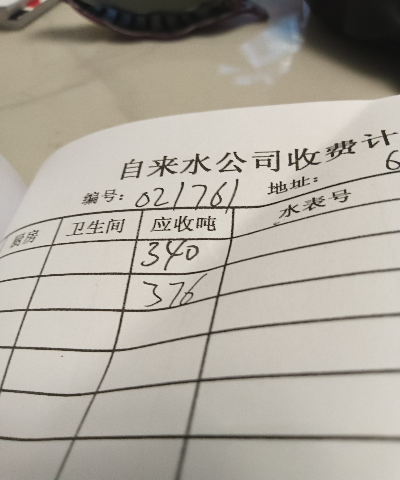 自来水公司收费计
编号: 021761 地址: 6
厨房 卫生间 应收吨 水表号
340
376